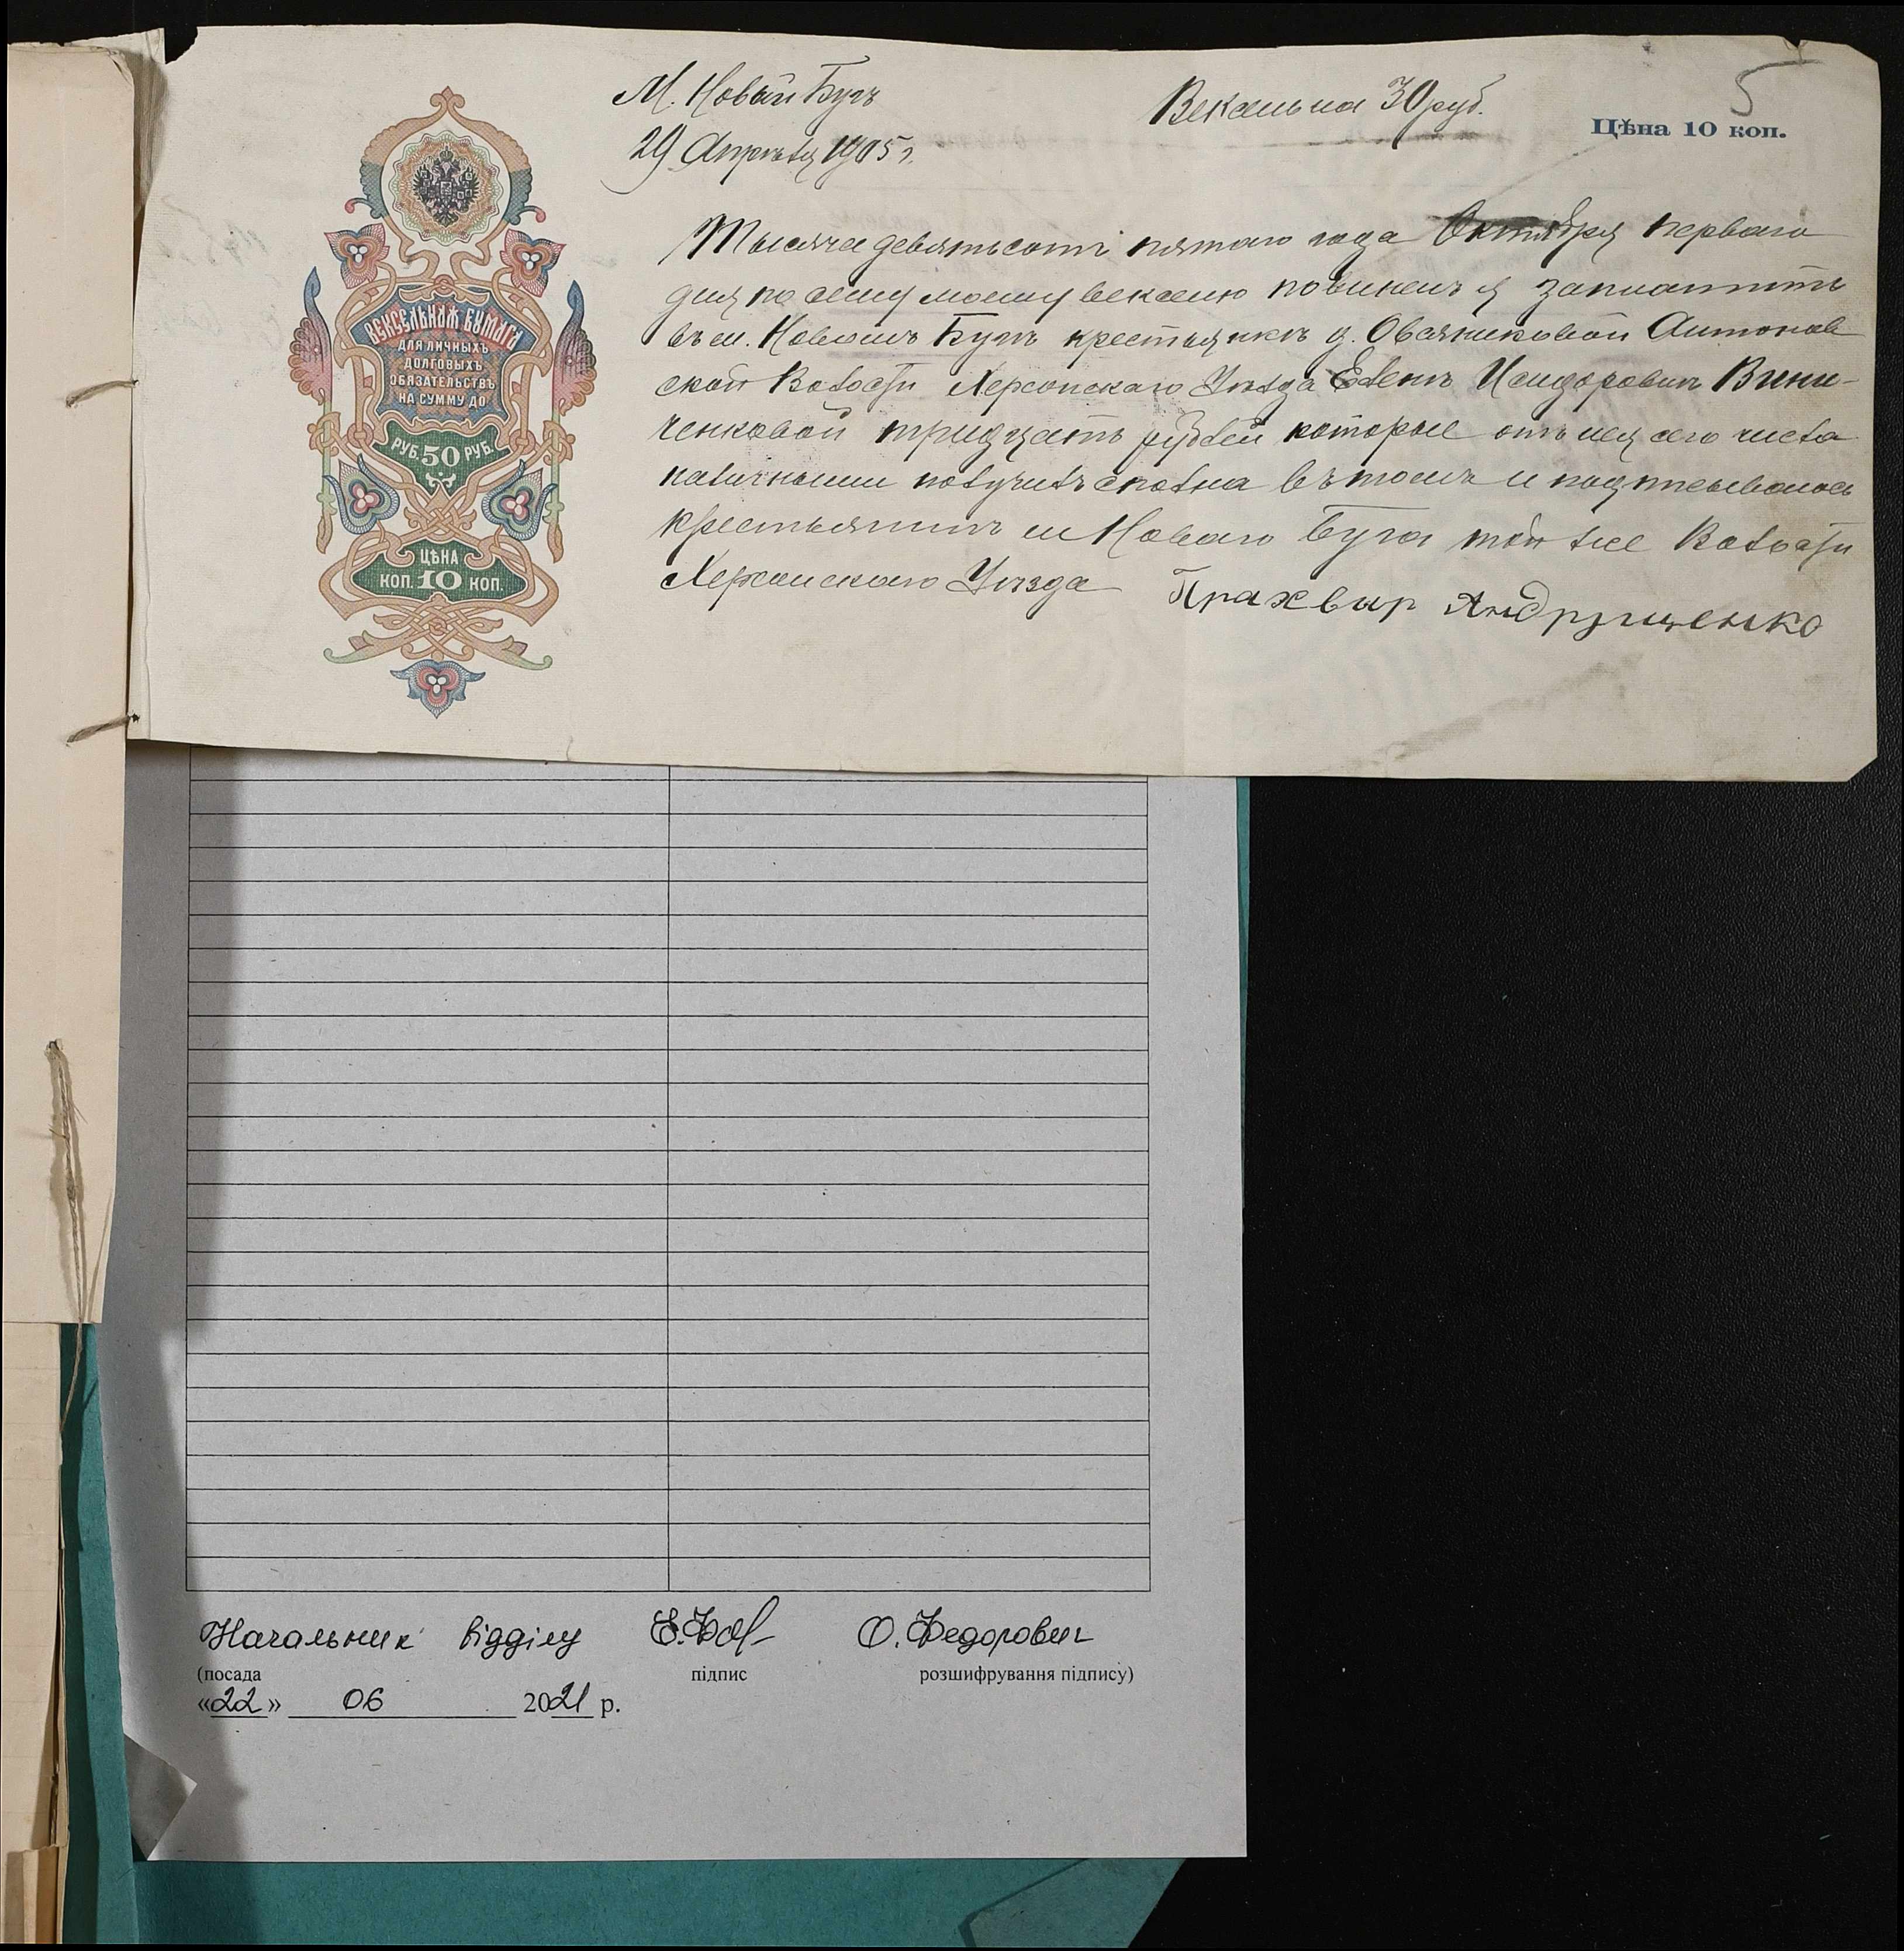 М. Новый Бугъ
29 Апрѣля 1905 г.
Вексель на 30 руб.
5
Цѣна 10 коп.
ВЕКСЕЛЬНАЯ БУМАГА
ДЛЯ ЛИЧНЫХЪ
ДОЛГОВЫХЪ
ОБЯЗАТЕЛЬСТВЪ
НА СУММУ ДО
РУБ. 50 РУБ.
ЦѢНА
КОП. 10 КОП.
Тысяча девятьсотъ пятаго года Октября перваго
дня по сему моему векселю повиненъ я заплатить
въ м. Новомъ Бугѣ крестьянкѣ д. Овсяниковой Антонов
ской Волости Херсонскаго Уѣзда Еленѣ Исидоровнѣ Вини-
ченковой тридцать рублей которые отъ нея сего числа
наличными получилъ сполна въ томъ и подписываюсь
крестьянинъ м Новаго Буга той же Волости
Херсонскаго Уѣзда Прахвыр Андрущенко
Начальник відділу О. Федорович
(посада підпис розшифрування підпису)
«22» 06 2021 р.